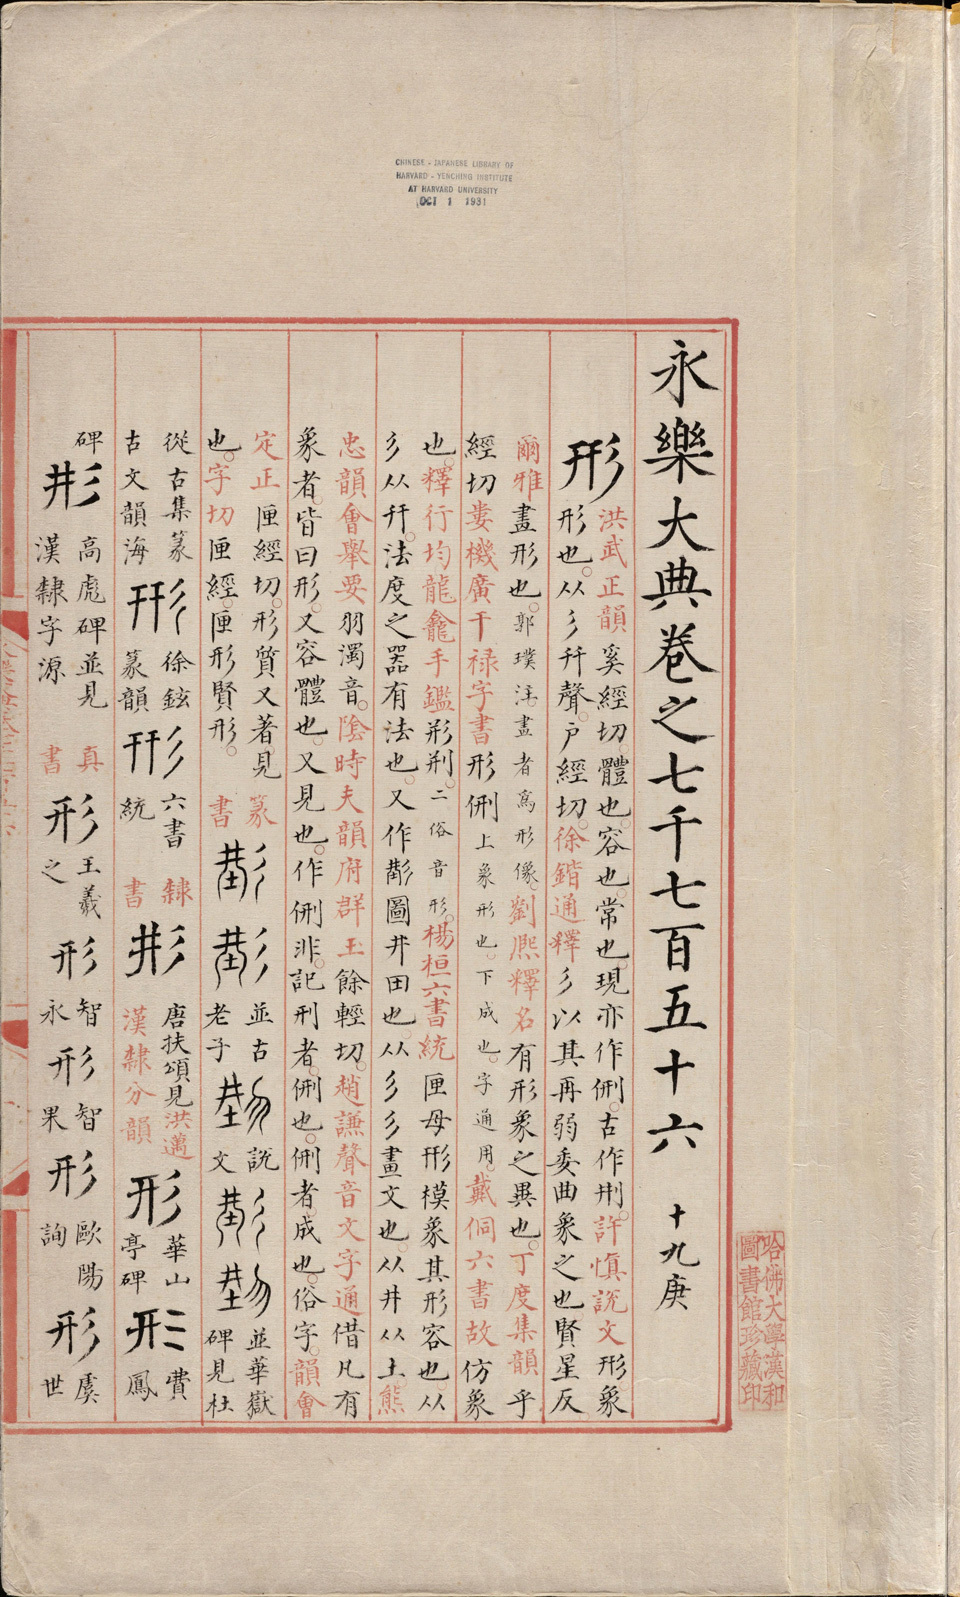 CHINESE - JAPANESE LIBRARY OF
HARVARD - YENCHING INSTITUTE
AT HARVARD UNIVERSITY
OCT 1 1931
永樂大典卷之七千七百五十六 十九庚
形
洪武正韻奚經切體也容也常也現亦作侀古作㓝許慎說文形象
形也从彡幵聲戶經切徐鍇通釋彡以其再弱委曲象之也賢星反
爾雅畫形也郭璞注畫者寫形像劉熈釋名有形象之異也丁度集韻乎
經切婁機廣干禄字書形侀上象形也下成也字通用戴侗六書故仿象
也釋行均龍龕手鑑形㓝二俗音形楊桓六書統匣母形模象其形容也从
彡从幵法度之器有法也又作㓝圖井田也从彡彡畫文也从井从土熊
忠韻會舉要羽濁音陰時夫韻府群玉餘輕切趙謙聲音文字通借凡有
象者皆曰形又容體也又見也作侀非記刑者侀也侀者成也俗字韻會
定正匣經切形質又著見篆
也字切匣經匣形賢形書
並古
老子
說
文
並華嶽
碑見杜
從古集篆
古文韻海
徐鉉
篆韻
六書
統
隸
書
唐扶頌見洪邁
漢隸分韻
形
華山
亭碑
形
費
鳳
碑
形
高彪碑並見
漢隸字源
真
書
形
王羲
之
形
智
永
形
智
果
形
歐陽
詢
形
虞
世
哈佛大學漢和
圖書館珍藏印